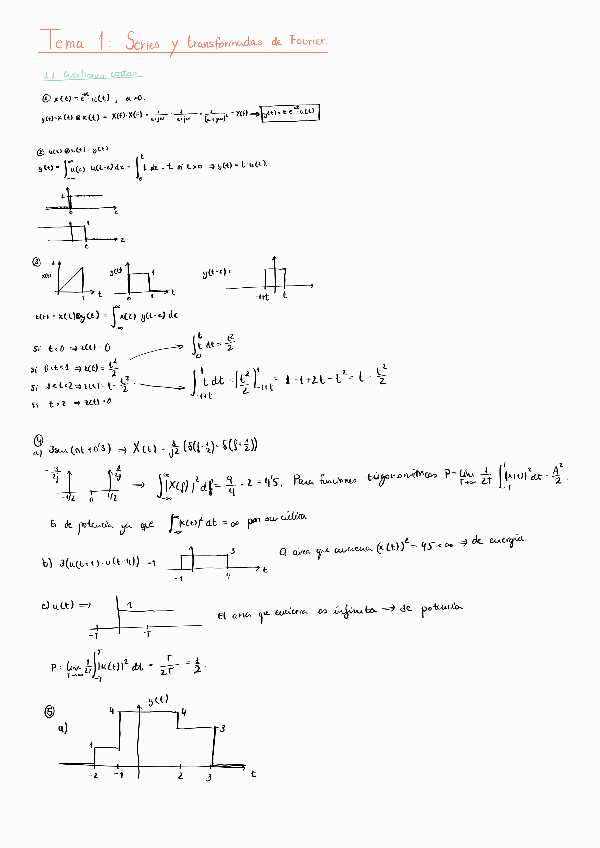 Tema 1: Series y transformadas de Fourier.
1.1. Cuestiones cortas
① x(t) = e^{-at} u(t), a>0.
y(t) = x(t) ⊗ x(t) = X(f)·X(f) = 1/(a+jw) · 1/(a+jw) = 1/(a+jw)² = Y(f) → y(t) = t e^{-at} u(t)
② u(t) ⊗ u(t) = y(t)
y(t) = ∫_{-∞}^{∞} u(z) u(t-z) dz = ∫_0^t 1 dz = t si t>0 ⇒ y(t) = t·u(t).
③ x(t) 1 t y(t) 0 1 t y(t-z): -1+t t
z(t) = x(t) ⊗ y(t) = ∫_{-∞}^{∞} x(z) y(t-z) dz
Si t<0 → z(t) = 0
∫_0^t t dt = t²/2
si 0<t<1 → z(t) = t²/2
si 1<t<2 → z(t) = t - t²/2
∫_{-1+t}^1 t dt = [t²/2]_{-1+t}^1 =
si t>2 → z(t) = 0
④
a) 3sen(πt + 0'3) →
-1/2 0 1/2 → ∫_{-∞}^{∞} |X(f)|² df = 9/4 · 2 = 4'5. Para funciones trigonométricas P = lim_{T→∞} 1/2T ∫ |x(t)|² dt = A²/2.
Es de potencia ya que ∫ |x(t)|² dt = ∞ por ser cíclica
b) 3(u(t+1) - u(t-4)) -1 3 t
-1 4
El área que encierra (x(t))² = 45 < ∞ → de energía.
c) u(t) ⇒ 1 -T T
El area que encierra es infinita → de potencia
P = lim_{T→∞} 1/2T ∫_{-T}^T |u(t)|² dt = T/2T = 1/2.
⑤ y(t)
a) 4 4
3
1
-2 -1 2 3 t